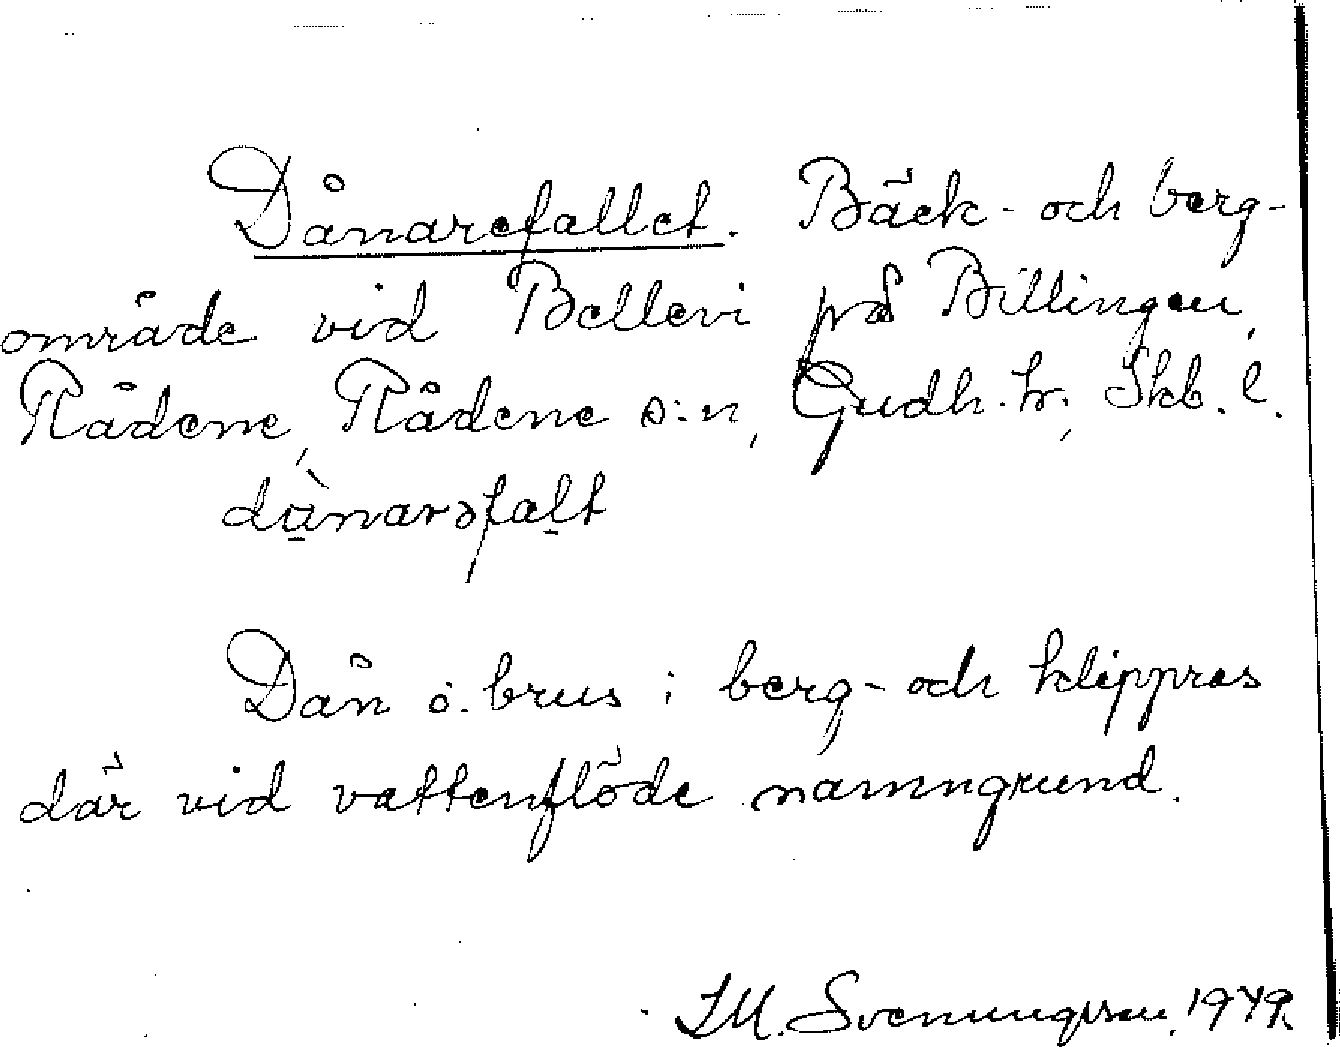 Dånarefallet. Bäck- och berg-
område vid Bellevi på Billingen,
Rådene, Rådene s:n, Gudh. hr, Skb. l.
dånarəfalt
Dån o. brus i berg- och klippras
där vid vattenflöde namngrund.
I.M. Svenungsson, 1979.